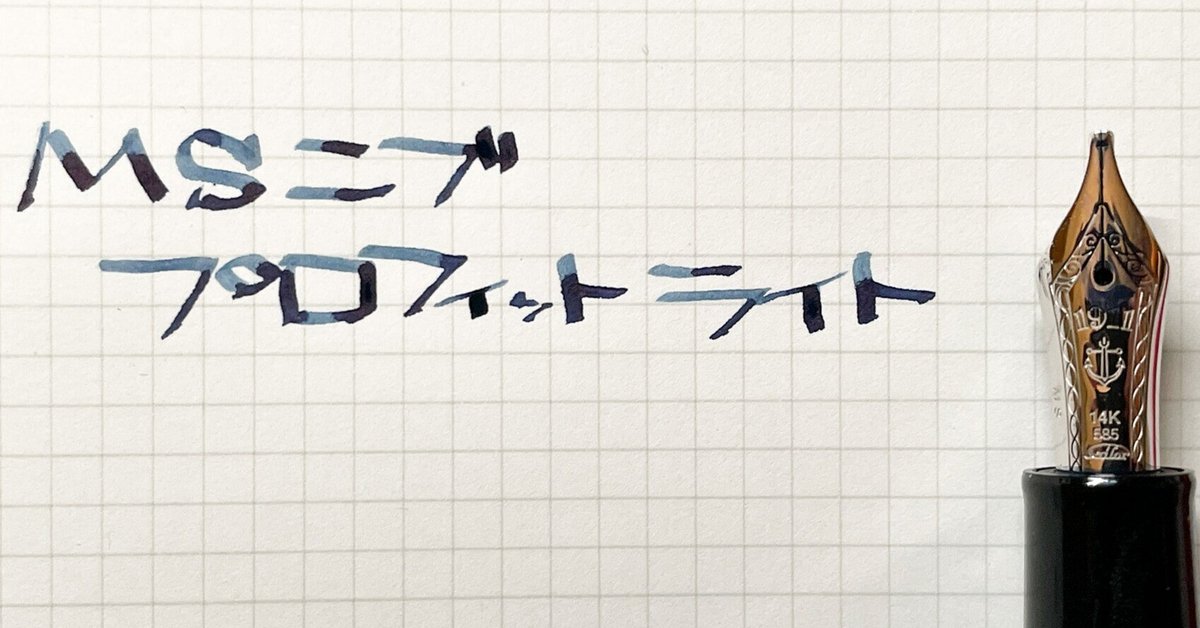 MSニブ
プロフィットライト
19_11
14K
585
Sailor